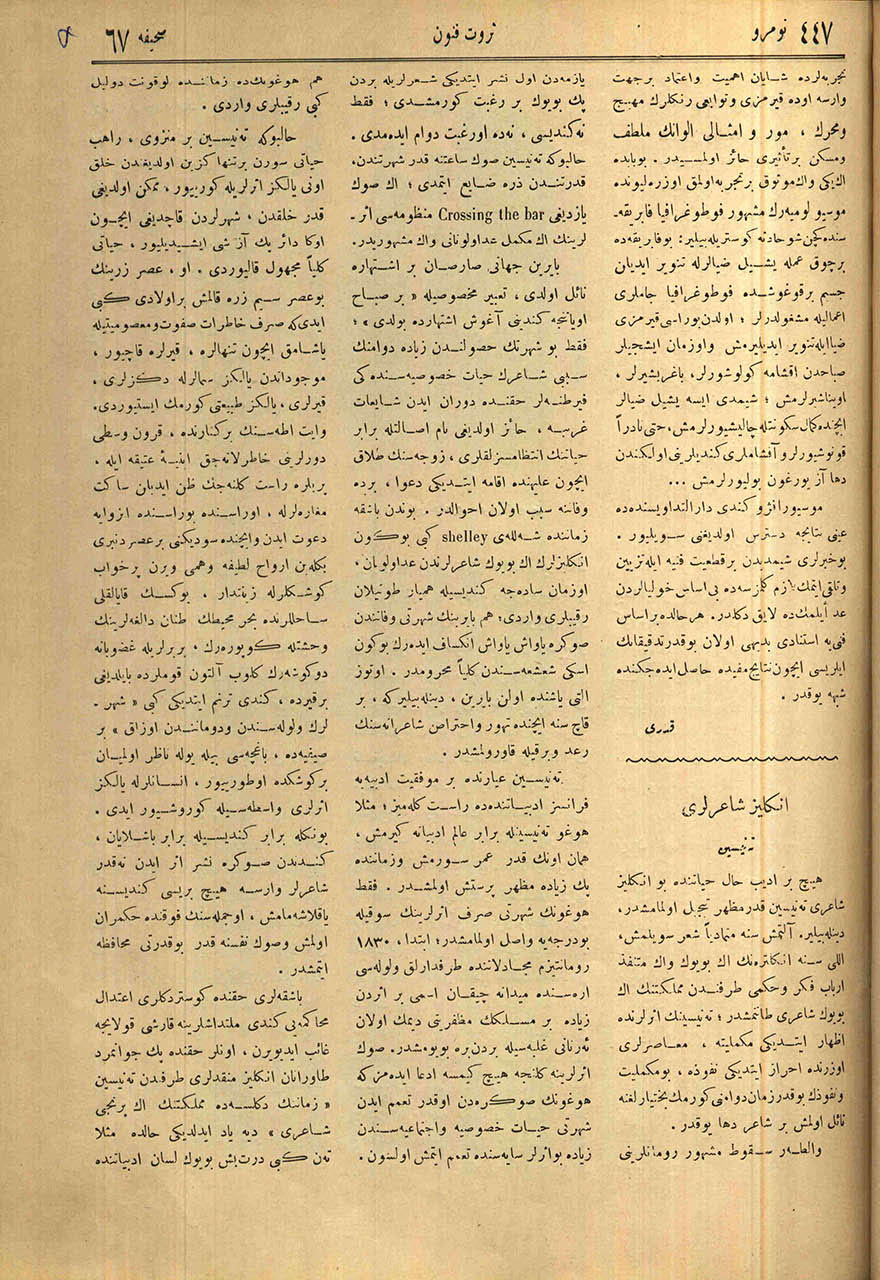 ٤٤٧ نومرو
ثروت فنون
صحيفه ٦٧
تجربه‌لرده شايان اهميت واعتماد برجهت
وارسه اوده قيرمزى ونوايعى رنكلرك مهيج
ومحرك ، مور و امثالى الوانك ملطف
ومسكن برتأثيرى حائز اولمسيدر . بوبابده
اك‌يكى واك‌موثوق برتجربه‌اولمق اوزره‌ليونده
موسيو لوميه‌رك مشهور فوطوغرافيا فابريقه‌ـ
سنده‌كچن‌شوحادثه كوستريله‌بيلير: بوفابريقه‌ده
برچوق عمله يشيل ضيالرله تنوير ايديلن
جسيم برقوغوشده فوطوغرافيا جاملرى
اعماليله مشغولدرلر ؛ اولدن‌بوراسى‌قيرمزى
ضياايله‌تنوير ايديليرمش واوزمان ايشجيلر
صباحدن اقشامه كولوشورلر، باغريشيرلر ،
اويناشيرلرمش ؛ شيمدى ايسه يشيل ضيالر
ايچنده‌كمال سكونتله‌چاليشيورلرمش، حتى‌نادراً
قونوشيورلر و آقشاملرى كنديلرينى اولكندن
دها آز يورغون بوليورلرمش ...
موسيورانژو كندى دارالتداويسنده‌ده
عينى نتايجه دسترس اولديغنى سويليور .
بوخبرلرى شيمديدن برقطعيت فنيه ايله‌تزيين
وتلقى‌ايتمك‌لازم كلمزسه‌ده بى‌اساس خوليالردن
عد ايلمك‌ده لايق دكلدر. هر حالده براساس
فنى‌يه استنادى بديهى اولان بوقدرتدقيقاتك
ايلريسى ايچون نتايج‌مفيده حاصل ايده‌جكنده
شبهه يوقدر .
قدرى
انكليز شاعرلرى
ته‌نيسن
هيچ بر اديب حال حياتنده بو انكليز
شاعرى ته‌نيسن قدرمظهر تبجيل اولمامشدر،
دينله‌بيلير. آلتمش سنه متمادياً شعر سويلمش،
اللى سنه انكلتره‌نك اك بويوك واك متنفذ
ارباب فكر وحكمى طرفندن مملكتنك اك
بويوك شاعرى طانتمشدر ؛ ته‌نيسنك اثرلرنده
اظهار ايتديكى مكمليته ، معاصرلرى
اوزرنده احراز ايتديكى نفوذه ، بومكمليت
ونفوذك بوقدرزمان‌دوامنى كورمك‌بختيارلغنه
نائل اولمش بر شاعر دها يوقدر .
والطه‌ر سقوط مشهور رومانلرينى
يازمه‌دن اول نشر ايتديكى شعرلريله بردن
پك بويوك بر رغبت كورمشدى ؛ فقط
نه‌كنديسى ، نه‌ده اورغبت دوام ايده‌مدى .
حالبوكه ته‌نيسن صوك ساعتنه قدر شهرتندن،
قدرتندن ذره ضايع ايتمدى ؛ اك صوك
يازديغى Crossing the bar منظومه‌سى اثرـ
لرينك اك مكمل عداولونانى واك مشهوريدر.
بايرن جهانى صارصان بر اشتهاره
نائل اولدى ، تعبير مخصوصيله « بر صباح
اويانجه كندينى آغوش اشتهارده بولدى » ؛
فقط بو شهرتك حصولندن زياده دوامنك
سببى شاعرك حيات خصوصيه‌سنده‌كى
فيرطنه‌لر حقنده دوران ايدن شايعات
غريبه ، حائز اولديغى نام اصالتله برابر
حياتنك انتظامسزلقلرى ، زوجه‌سنك طلاق
ايچون عليهنده اقامه ايتديكى دعوا ، برده
وفاتنه سبب اولان احوالدر . بوندن باشقه
زماننده شه‌لله‌ى shelley كبى بوكون
انكلترلرك اك بويوك شاعرلرندن عداولونان،
اوزمان ساده‌جه كنديسيله همعيار طوتيلان
رقيبلرى واردى؛ هم بايرنك شهرتى وفاتندن
صوكره ياواش ياواش انكساف ايده‌رك بوكون
اسكى شعشعه‌سندن كلياً محرومدر . اوتوز
التى ياشنده اولن بايرن ، دينله‌بيليركه ، بر
قاچ سنه ايچنده تهور واحتراص شاعرانه‌سنك
رعد وبرقيله قاورولمشدر.
ته‌نيسن عيارنده بر موفقيت ادبيه‌يه
فرانسز ادبياتنده‌ده راست كله‌مييز ؛ مثلا
هوغو ته‌نيسنله برابر عالم ادبياته كيرمش ،
همان اونك قدر عمر سورمش وزماننده
پك زياده مظهر پرستش اولمشدر . فقط
هوغونك شهرتى صرف اثرلرينك سوقيله
بودرجه‌يه واصل اولمامشدر؛ ابتدا ، ١٨٣٠
رومانتيزم مجادلاتنده طرفدارلق ولوله‌سى
اره‌سنده ميدانه چيقان اسمى بر اثردن
زياده بر مسلكك مظفريتى ديمك اولان
ئه‌رنانى غلبه‌سيله بردن‌بره بويومشدر. صوك
اثرلرينه كلنجه هيچ كيمسه ادعا ايده‌مزكه
هوغونك صوكره‌دن اوقدر تعمم ايدن
شهرتى حيات خصوصيه واجتماعيه‌سندن
زياده بواثرلر سايه‌سنده تعمم ايتمش اولسون .
هم هوغونك‌ده زماننده لوقونت دوليل
كبى رقيبلرى واردى .
حالبوكه ته‌نيسن بر منزوى ، راهب
حياتى سورن برتنهاكزين اولديغندن خلق
اونى يالكز اثرلريله كوريور ، ممكن اولديغى
قدر خلقدن ، شهرلردن قاچديغى ايچون
اوكا دائر پك آز شى ايشيديليور ، حياتى
كلياً مجهول قاليوردى . او ، عصر زرينك
بوعصر سيم زره قالمش براولادى كبى
ايدى‌كه صرف خاطرات صفوت ومعصوميتيله
ياشامق ايچون تنهالره ، قيرلره قاچيور ،
موجوداتدن يالكز سمالرله دكزلرى ،
قيرلرى ، يالكز طبيعتى كورمك ايستيوردى.
وايت اطه‌سنك بركنارنده ، قرون وسطى
دورلرينى خاطرلاته‌جق ابنيهٔ عتيقه ايله ،
پريلره راست كلنه‌جك ظن ايديلن ساكت
مغاره‌لرله ، اوراسنده بوراسنده انزوايه
دعوت ايدن وايچنده سوديكنى برعصر دنبرى
بكله‌ين ارواح لطيفه وهمى ويرن پرخواب
كوشكلرله زينتدار ، يوكسك قايالقلى
ساحللرنده بحر محيطك طنان دالغه‌لرينك
وحشتله كوپوره‌رك ، بربرلريله غضوبانه
دوكوشه‌رك كلوب آلتون قوملرده بايلديغى
برقيرده ، كندى ترنم ايتديكى كبى « شهرـ
لرك ولوله‌سندن ودومانندن اوزاق » بر
صيفيه‌ده ، باغچه‌سى بيله يوله ناظر اولميان
بركوشكده اوطوريور ، انسانلرله يالكز
اثرلرى واسطه‌سيله كوروشيور ايدى .
بونكله برابر كنديسيله برابر باشلايان ،
كنديدن صوكره نشر اثر ايدن نه‌قدر
شاعرلر وارسه هيچ بريسى كنديسنه
ياقلاشه‌مامش ، اوجمله‌سنك فوقنده حكمران
اولمش وصوك نفسنه قدر بوقدرتى محافظه
ايتمشدر .
باشقه‌لرى حقنده كوستردكلرى اعتدال
محاكمه‌يى كندى ملتداشلرينه قارشى قولايجه
غائب ايديورين ، اونلر حقنده پك جوانمرد
طاورانان انكليز منقدلرى طرفدن ته‌نيسن
« زماننك دكلسه‌ده مملكتنك اك برنجى
شاعرى » ديه ياد ايدلديكى حالده مثلا
ته‌ن كبى درت‌بش بويوك لسان ادبياتنده